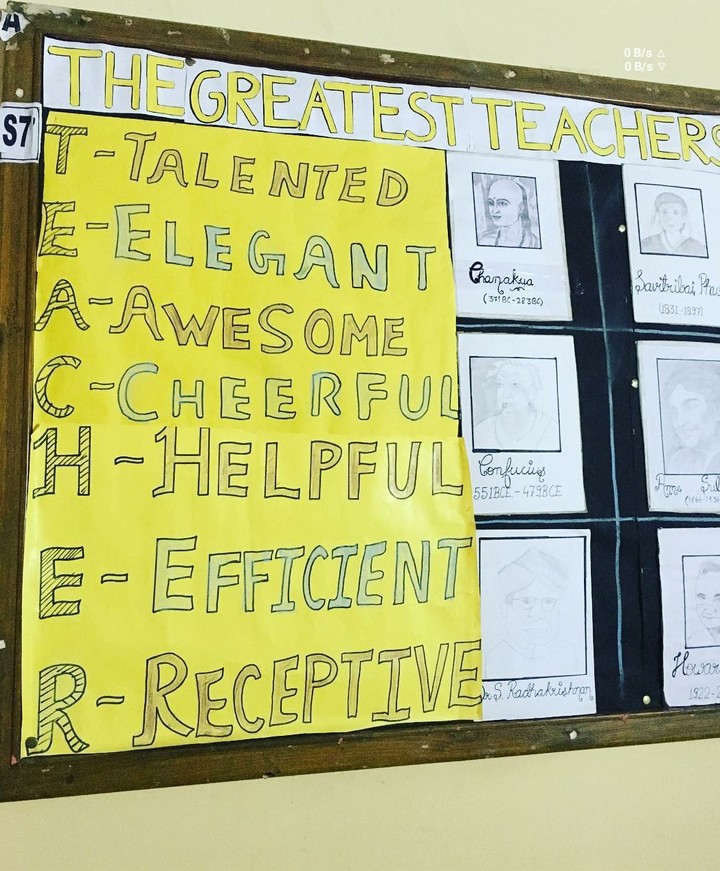 A
0 B/s △
0 B/s ▽
THE GREATEST TEACHERS
S7
T-TALENTED
E-ELEGANT
A-AWESOME
C-CHEERFUL
H-HELPFUL
E-EFFICIENT
R-RECEPTIVE
Chanakya
(371BC-283BC)
Savitribai
(1831-1897)
Confucius
551BCE-479BCE
Anne
S. Radhakrishnan
Howar
1922-